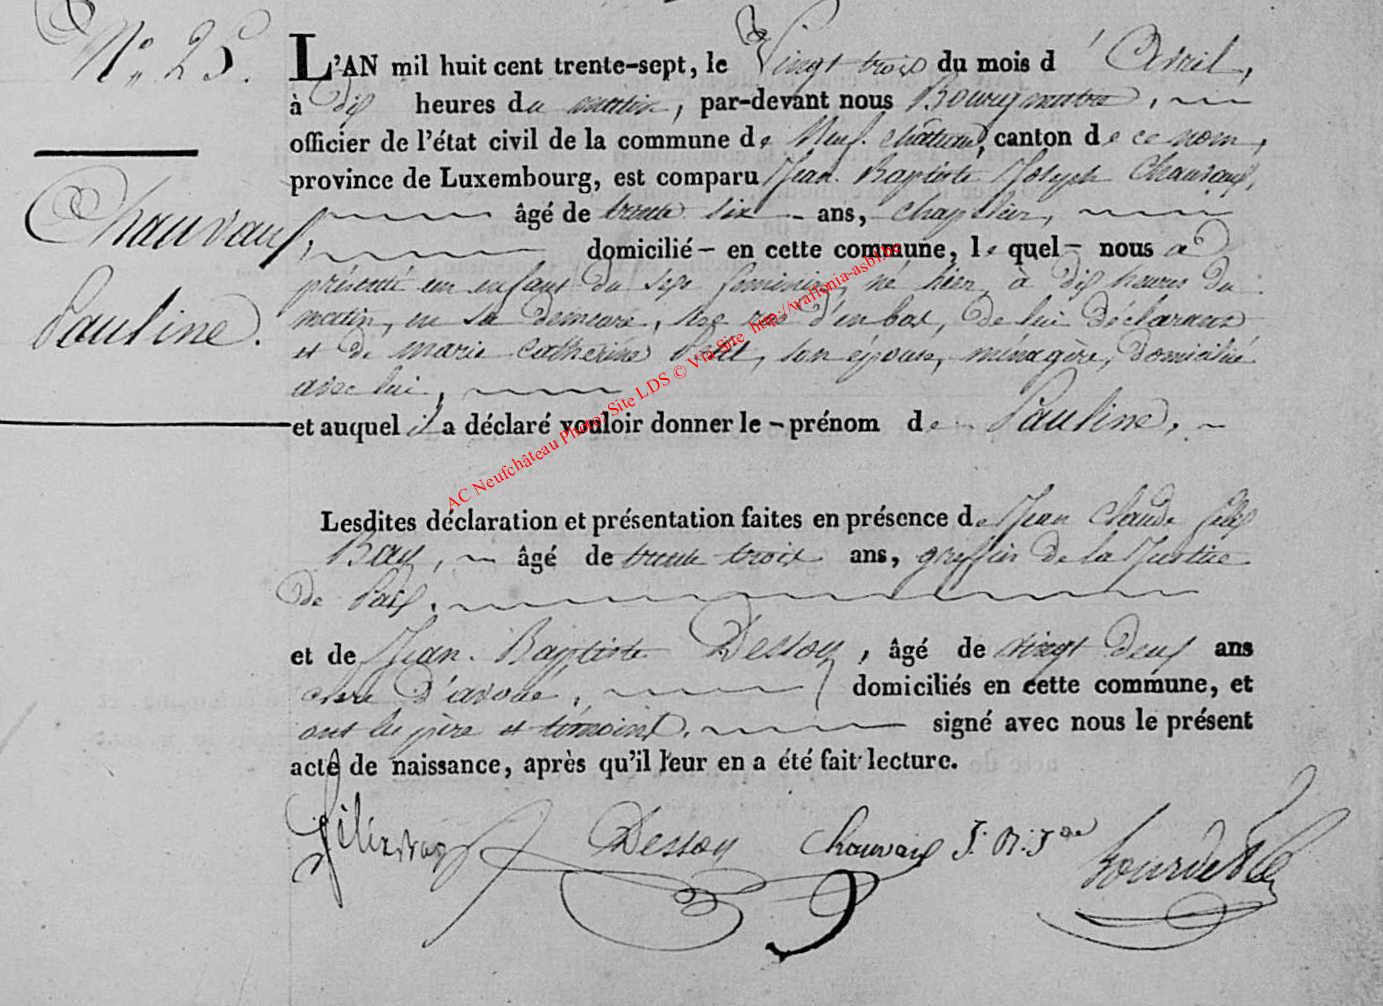 N° 25.
L'AN mil huit cent trente-sept, le Vingt trois du mois d'Avril,
à dix heures du matin, par-devant nous
officier de l'état civil de la commune de Neufchâteau, canton de ce nom,
province de Luxembourg, est comparu Jean Baptiste Joseph Chauvaux,
Chauvaux,
âgé de trente six ans, chapelier,
domicilié – en cette commune, le quel – nous a
présenté un enfant du sexe féminin, né hier à dix heures du
Pauline.
matin, en sa demeure, d'en bas, de lui déclarant
et de marie catherine son épouse, ménagère, domiciliée
avec lui,
et auquel il a déclaré vouloir donner le – prénom de Pauline,
AC Neufchâteau Photo: Site LDS © Via Site http://wallonia-asbl.be
Lesdites déclaration et présentation faites en présence de Jean Claude Félix
Bay, âgé de trente trois ans, greffier de la Justice
de Paix,
et de Jean Baptiste Dessoy, âgé de vingt deux ans
clerc d'avoué, domiciliés en cette commune, et
ont les père et témoins, signé avec nous le présent
acte de naissance, après qu'il leur en a été fait lecture.
Dessoy Chauvaux J. B. J.